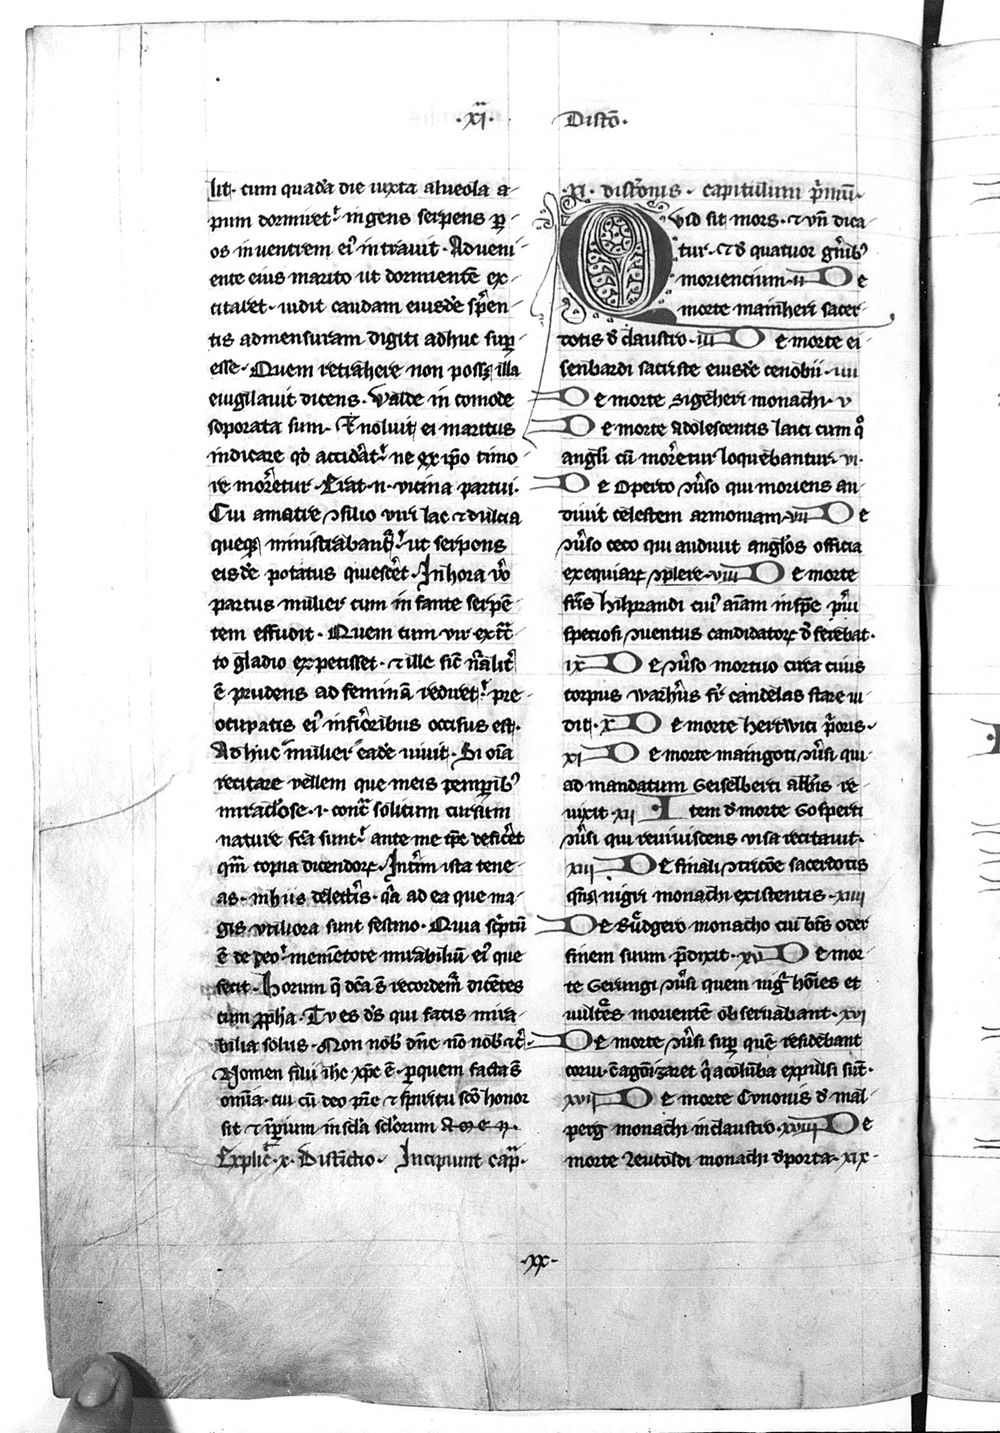 ·xi· Distō·
lit· cum quadā die iuxta alueola a-
pum dormiret ingens serpens ꝑ
os in ventrem eiꝰ intrauit· Adueni-
ente eius marito ut dormientē ex-
citaret· uidit caudam eiusdē ẜpen-
tis admensuram digiti adhuc suꝑ
esse· Quem retrahere non possꝫ illa
euigilauit dicens· Valde in comode
soporata sum· Et noluit ei maritus
indicare qd̄ accidat̄ ne ex ip̄o timo-
re moreretur· Erat·n· vicina partui·
Cui amatre ⁊ filio viri lac ⁊ dulcia
queqꝫ ministrabant᷑ ut serpens
eisdē potatus quiescēt· In hora v̊o
partus mulier cum infante serpē-
tem effudit· Quem cum vir ext̄c-
to gladio expetisset· ⁊ ille sic̄ nāliť
ē prudens ad feminā rediret pre
occupatis eiꝰ inferioribus occisus est·
Ad huc mulier eadē uiuit· Si oīa
recitare vellem que meis temporibꝰ
miraclose ·i· cont̄ solitum cursum
nature fc̄a sunt ante me tp̄e deficēt
qm̄ copia dicendoꝝ· Intīm ista tene-
as· in hiis delectīs· q̄a ad ea que ma-
gis vtiliora sunt festino· Quia sc̄ptū
ē de deo mementote mirabiliū eiꝰ que
fecit· Horum q̄ dc̄a s̄ recordem̄ dicētes
cum ꝓph̄a· Tu es dš qui facis mira-
bilia solus· Non nob̄ dn̄e nō nob̄ ⁊c̄·
Nomen filii ihc xp̄c ē· ꝑquem facta s̄
omīa· cui cū deo pr̄e ⁊ spiritu sc̄o honor
sit ⁊ īꝑium in scl̄a scl̄orum amen·
Explic̄·x· Distīctio· Incipiunt cap̄·
·xi· distōnis· capitulum p̄mū·
Quid sit mors· ⁊ vn̄ dica-
tur· ⁊ d̄ quatuor gn̄ibꝰ
moriencium· ii De
morte mainheri sacer-
dotis d̄ claustro· iii De morte ei-
senbardi sacriste eiusdē cenobii· iiii
De morte sigeheri monachi· v
De morte adolescentis laici cum q̊
angl̄i cū moret̄ur loquebantur· vi·
De Operto ↄūso qui moriens au-
diuit celestem armoniam· vii De
ↄūso ceco qui audiuit angl̄os officia
exequiaꝝ ↄplere· viii De morte
frīs hilprandi cuiꝰ aīam in spē p̄ui
speciosi iuuentus candidatoꝝ d̄ ferebat·
ix De ↄūso mortuo circa cuius
corpus warn̄us fr̄ candelas stare ui-
dit· x De morte hertwici p̄oris·
xi De morte maingoti ↄūsi qui
ad mandatum Geiselberti abb̄is re-
uixit· xii Item d̄ morte Gosperti
ↄūsi qui reuiuiscens visa recitauit·
xiii De finali ↄtricōe sacerdotis
nigri monachi existentis· xiiii
De Rudgero monacho cui
finem suum p̄dixit· xv De mor-
te Gerungi ↄūsi quem nigī hōies et
uultēs morientē obseruabant· xvi
De morte ↄūsi suꝑ quē residebant
corui· ē agōizaret q̄ a colūba expulsi sūt·
xvii De morte Cvnonis d̄ mal-
perg monachi in claustro· xviii De
morte Leutoldi monachi d̄ porta· xix·
·xx·